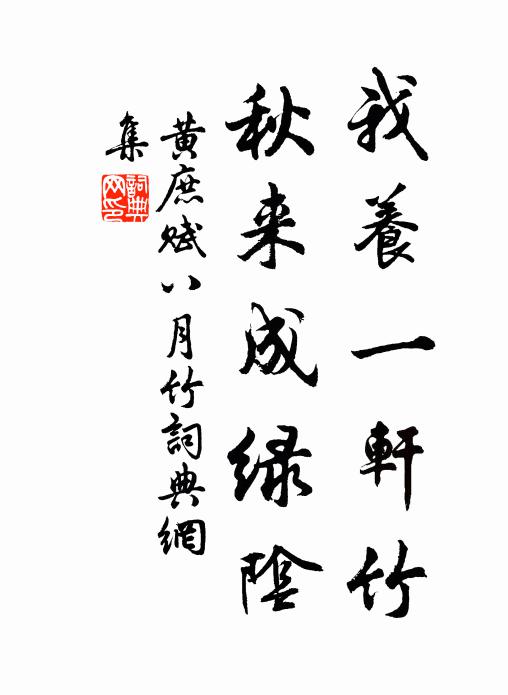 我養一軒竹
秋来成緑陰
黄庶賦八月竹詞典網
集
詞典
网印